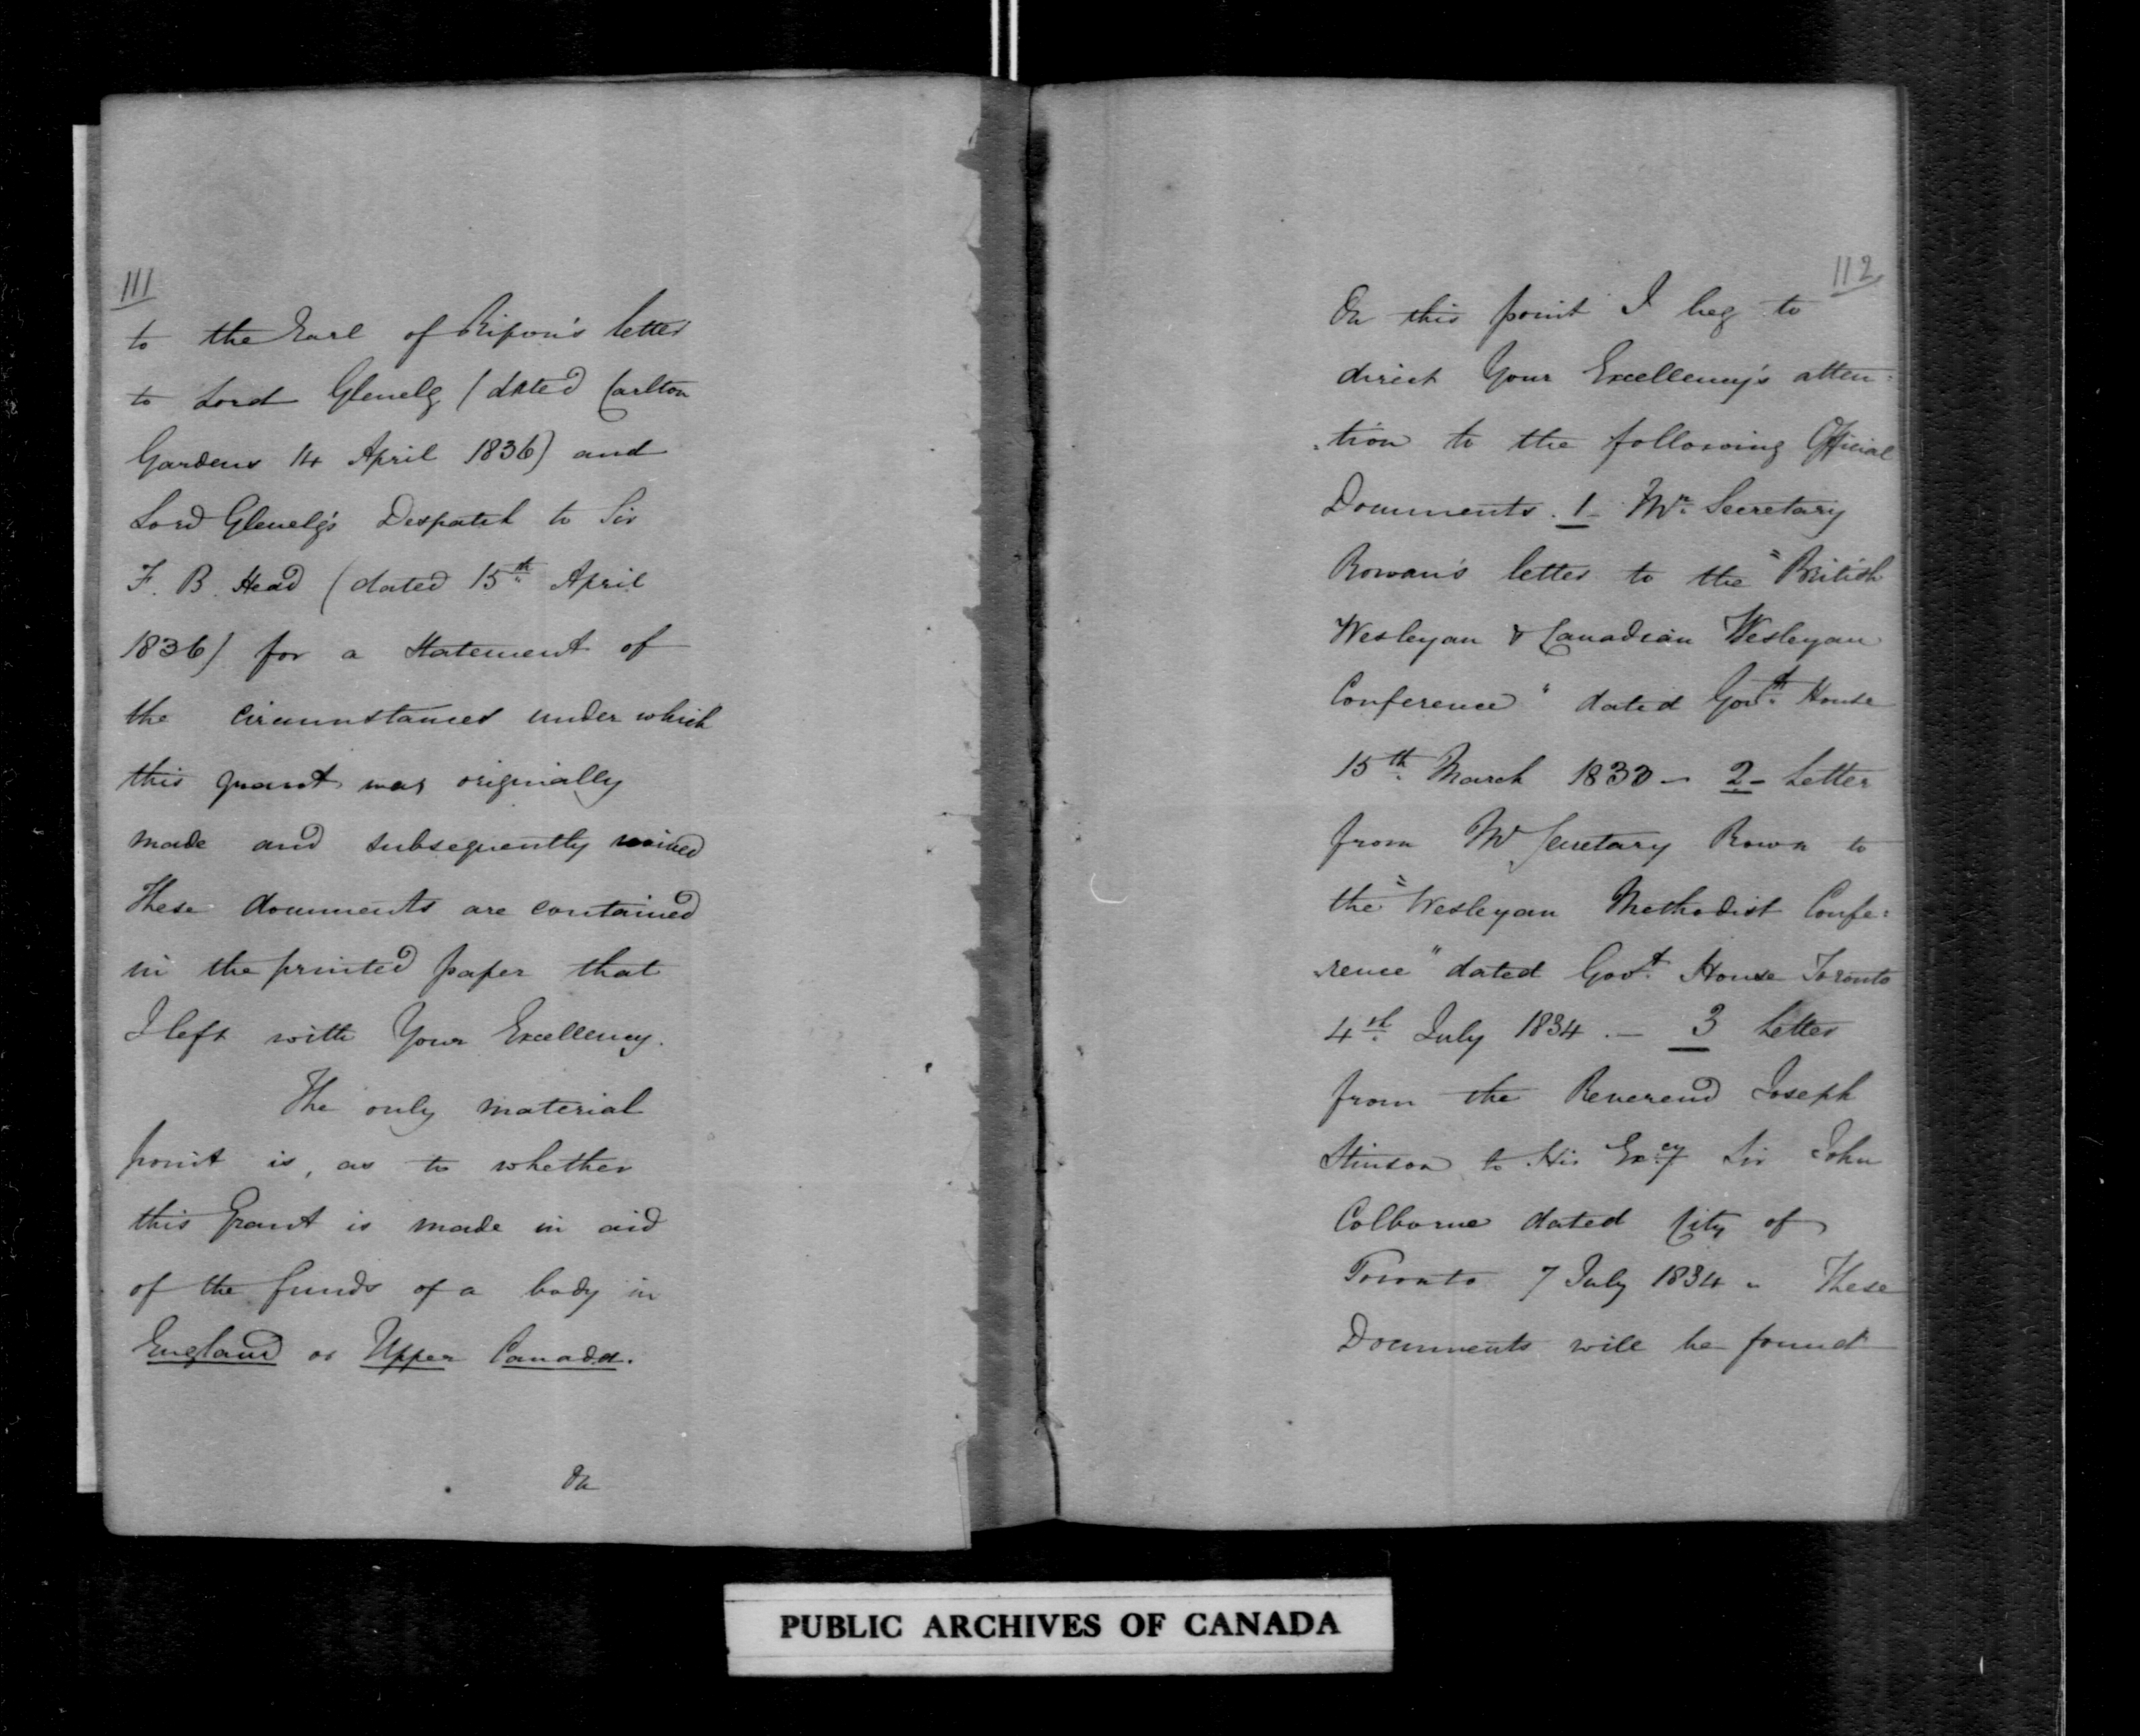 111
to the Earl of Ripon's letter
to Lord Glenelg (dated Carlton
Gardens 14 April 1836) and
Lord Glenelg's Despatch to Sir
F. B. Head (dated 15th April
1836) for a Statement of
the circumstances under which
this grant was originally
made and subsequently
These documents are contained
in the printed paper that
I left with Your Excellency.
The only material
point is, as to whether
this Grant is made in aid
of the funds of a body in
England or Upper Canada.
On
112
On this point I beg to
direct Your Excellency's atten-
-tion to the following Official
Documents. 1- Mr. Secretary
Rowan's letter to the "British
Wesleyan & Canadian Wesleyan
Conference" dated Govt. House
15th. March 1833 - 2- Letter
from Mr Secretary Rowan to
the "Wesleyan Methodist Confe=
rence" dated Govt. House Toronto
4th July 1834. - 3 Letter
from the Reverend Joseph
Stinson to His Excy Sir John
Colborne dated City of
Toronto 7 July 1834 - These
Documents will be found
PUBLIC ARCHIVES OF CANADA